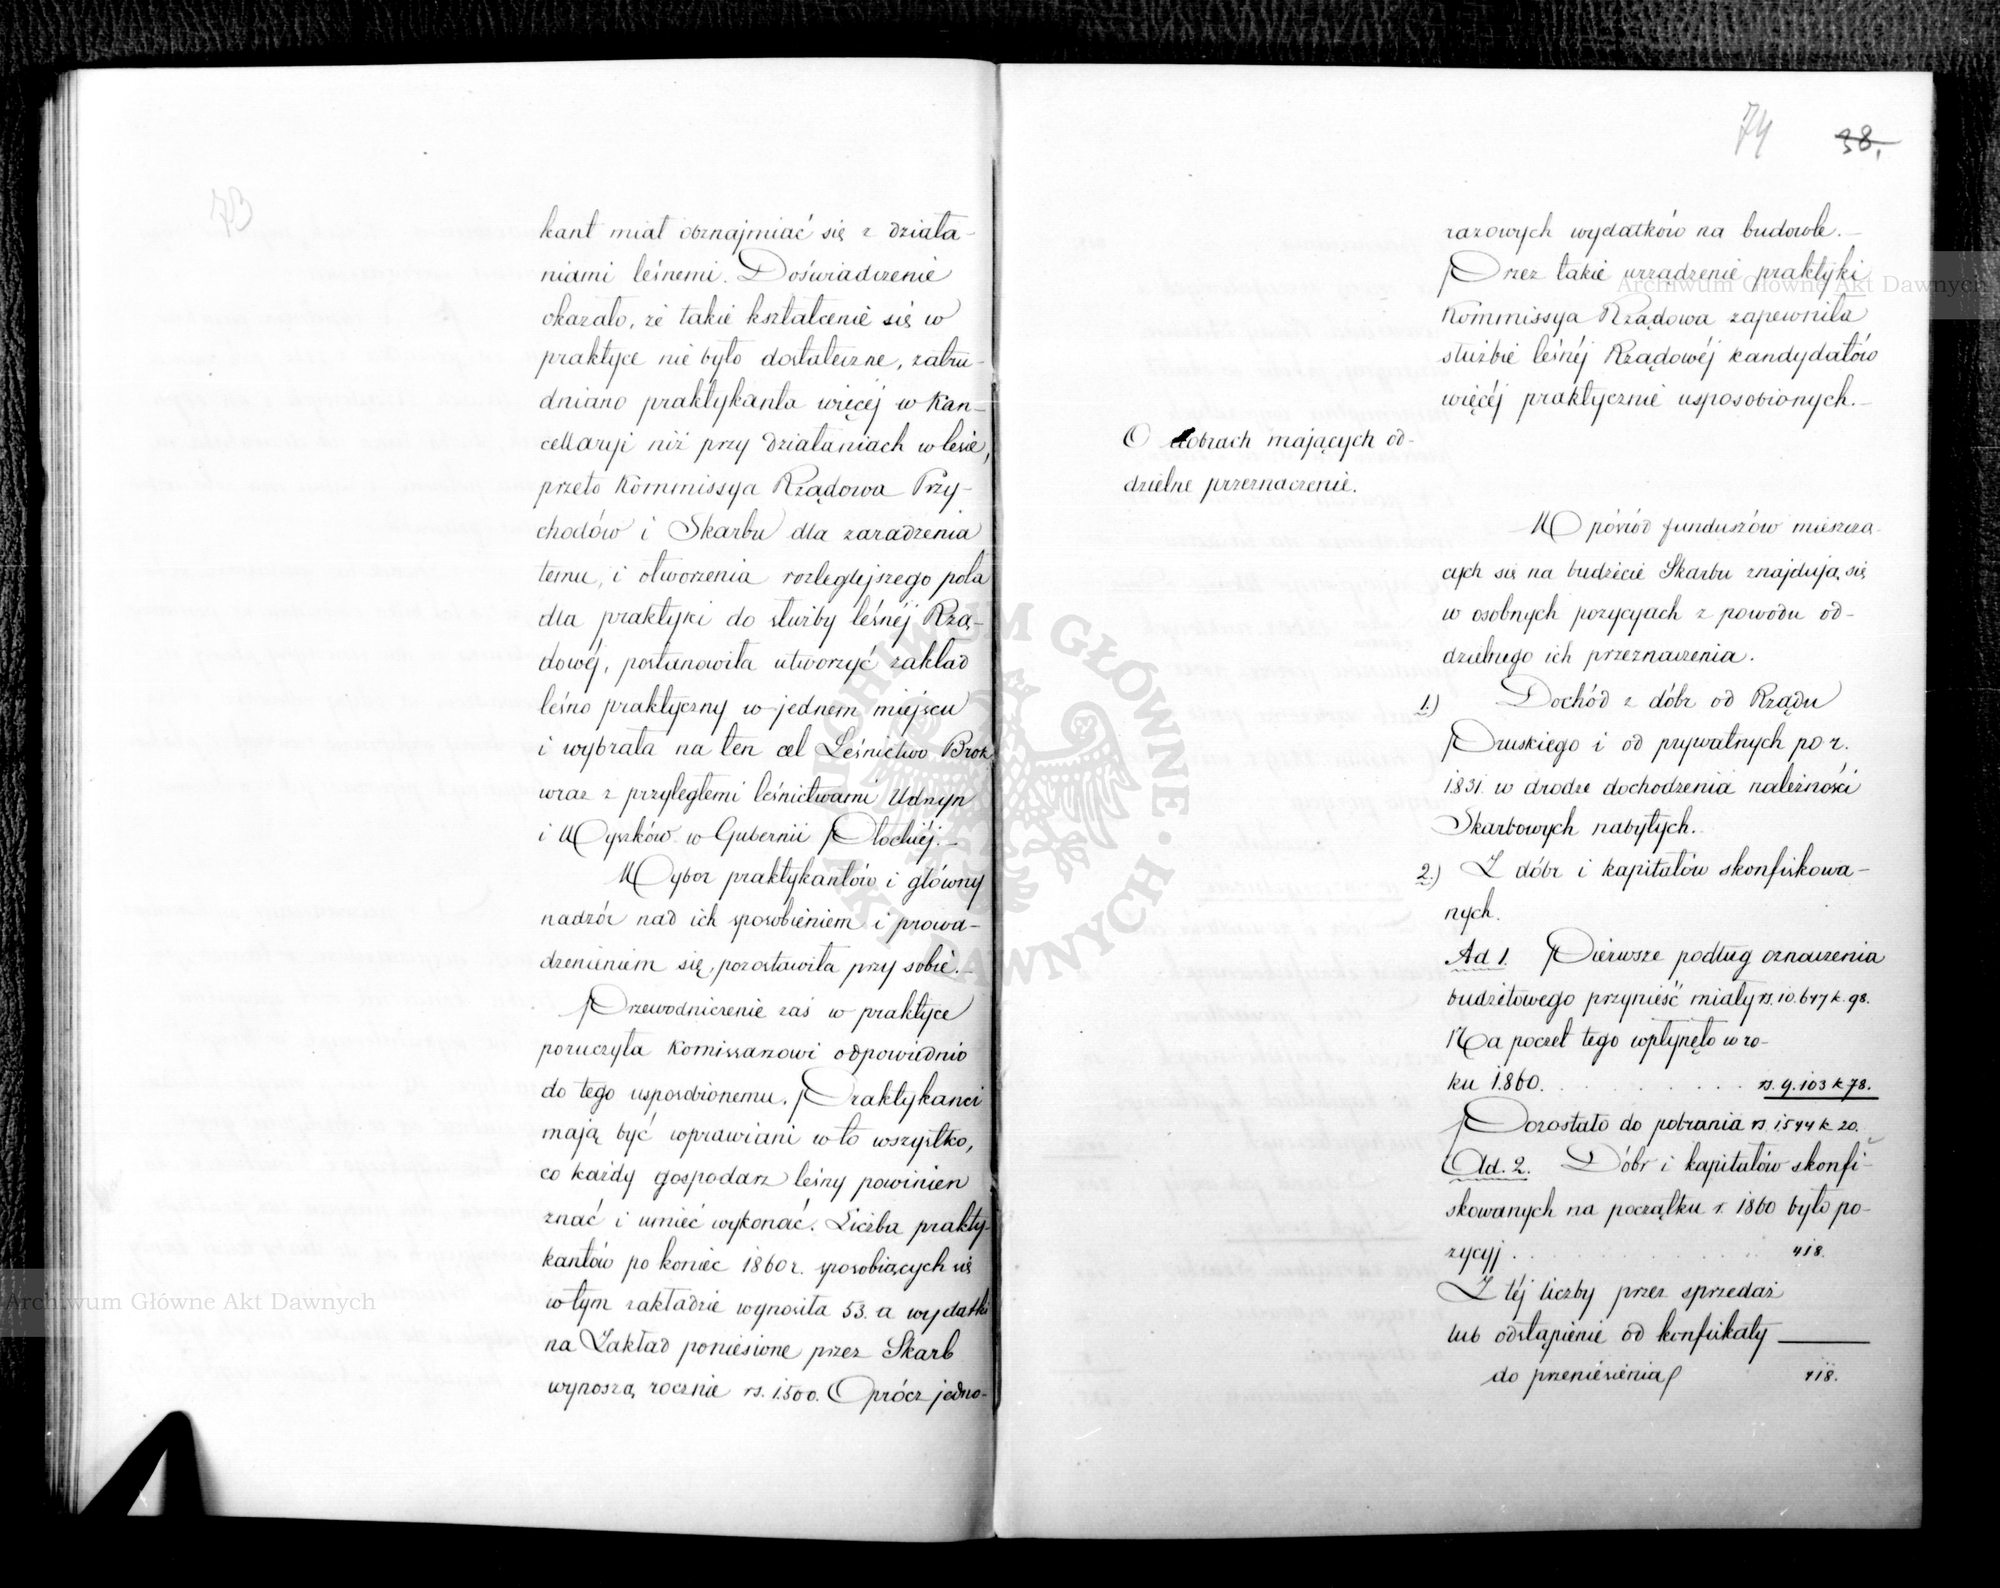 73
kant miał obznajmiać się z działa-
niami leśnemi. Doświadczenie
okazało, że takie kształcenie się w
praktyce nie było dostateczne, zatru-
dniano praktykanta więcéj w Kan-
cellaryi niż przy działaniach w lesie,
przeto Kommissya Rządowa Przy-
chodów i Skarbu dla zaradzenia
temu, i otworzenia rozleglejszego pola
dla praktyki do służby leśnéj Rzą-
dowéj, postanowiła utworzyć zakład
leśno praktyczny w jednem miejscu
i wybrała na ten cel Leśnictwo Brok
wraz z przyległemi leśnictwami Udrzyn
i Wyszków w Gubernii Płockiéj.-
Wybor praktykantów i główny
nadzór nad ich sposobieniem i prowa-
dzenieniem się, pozostawiła przy sobie.-
Przewodniczenie zaś w praktyce
poruczyła Komissarzowi odpowiednio
do tego usposobionemu. Praktykanci
mają być wprawiani w to wszystko,
co każdy gospodarz leśny powinien
znać i umieć wykonać. Liczba prakty-
kantów po koniec 1860 r. sposobiących się
w tym zakładzie wynosiła 53. a wydatki
na Zakład poniesione przez Skarb
wynoszą rocznie rs. 1.500. Oprócz jedno-
74 38,
razowych wydatków na budowle.-
Przez takie urządzenie praktyki
Kommissya Rządowa zapewniła
służbie leśnéj Rządowéj kandydatów
więcéj praktycznie usposobionych.-
O dobrach mających od-
dzielne przeznaczenie.
W pośród funduszów mieszczą-
cych się na budżecie Skarbu znajdują się
w osobnych pozycyjach z powodu od-
dzielnego ich przeznaczenia.
1.) Dochód z dóbr od Rządu
Pruskiego i od prywatnych po r.
1831. w drodze dochodzenia należności
Skarbowych nabytych.
2.) Z dóbr i kapitałów skonfiskowa-
nych.
Ad 1. Pierwsze podług oznaczenia
budżetowego przynieść miały rs. 10.647 k. 98.
Na poczet tego wpłynęło w ro-
ku 1860. . . . . . . . . . rs. 9.103 k 78.
Pozostało do pobrania rs. 1544 k 20.
Ad. 2. Dóbr i kapitałów skonfi-
skowanych na początku r. 1860 było po-
zycyj . . . . . . . . . . 418.
Z téj liczby przez sprzedaż
lub odstąpienie od konfiskaty ———
do przeniesienia 418.
Archiwum Główne Akt Dawnych
Archiwum Główne Akt Dawnych
ARCHIWUM GŁÓWNE AKT DAWNYCH